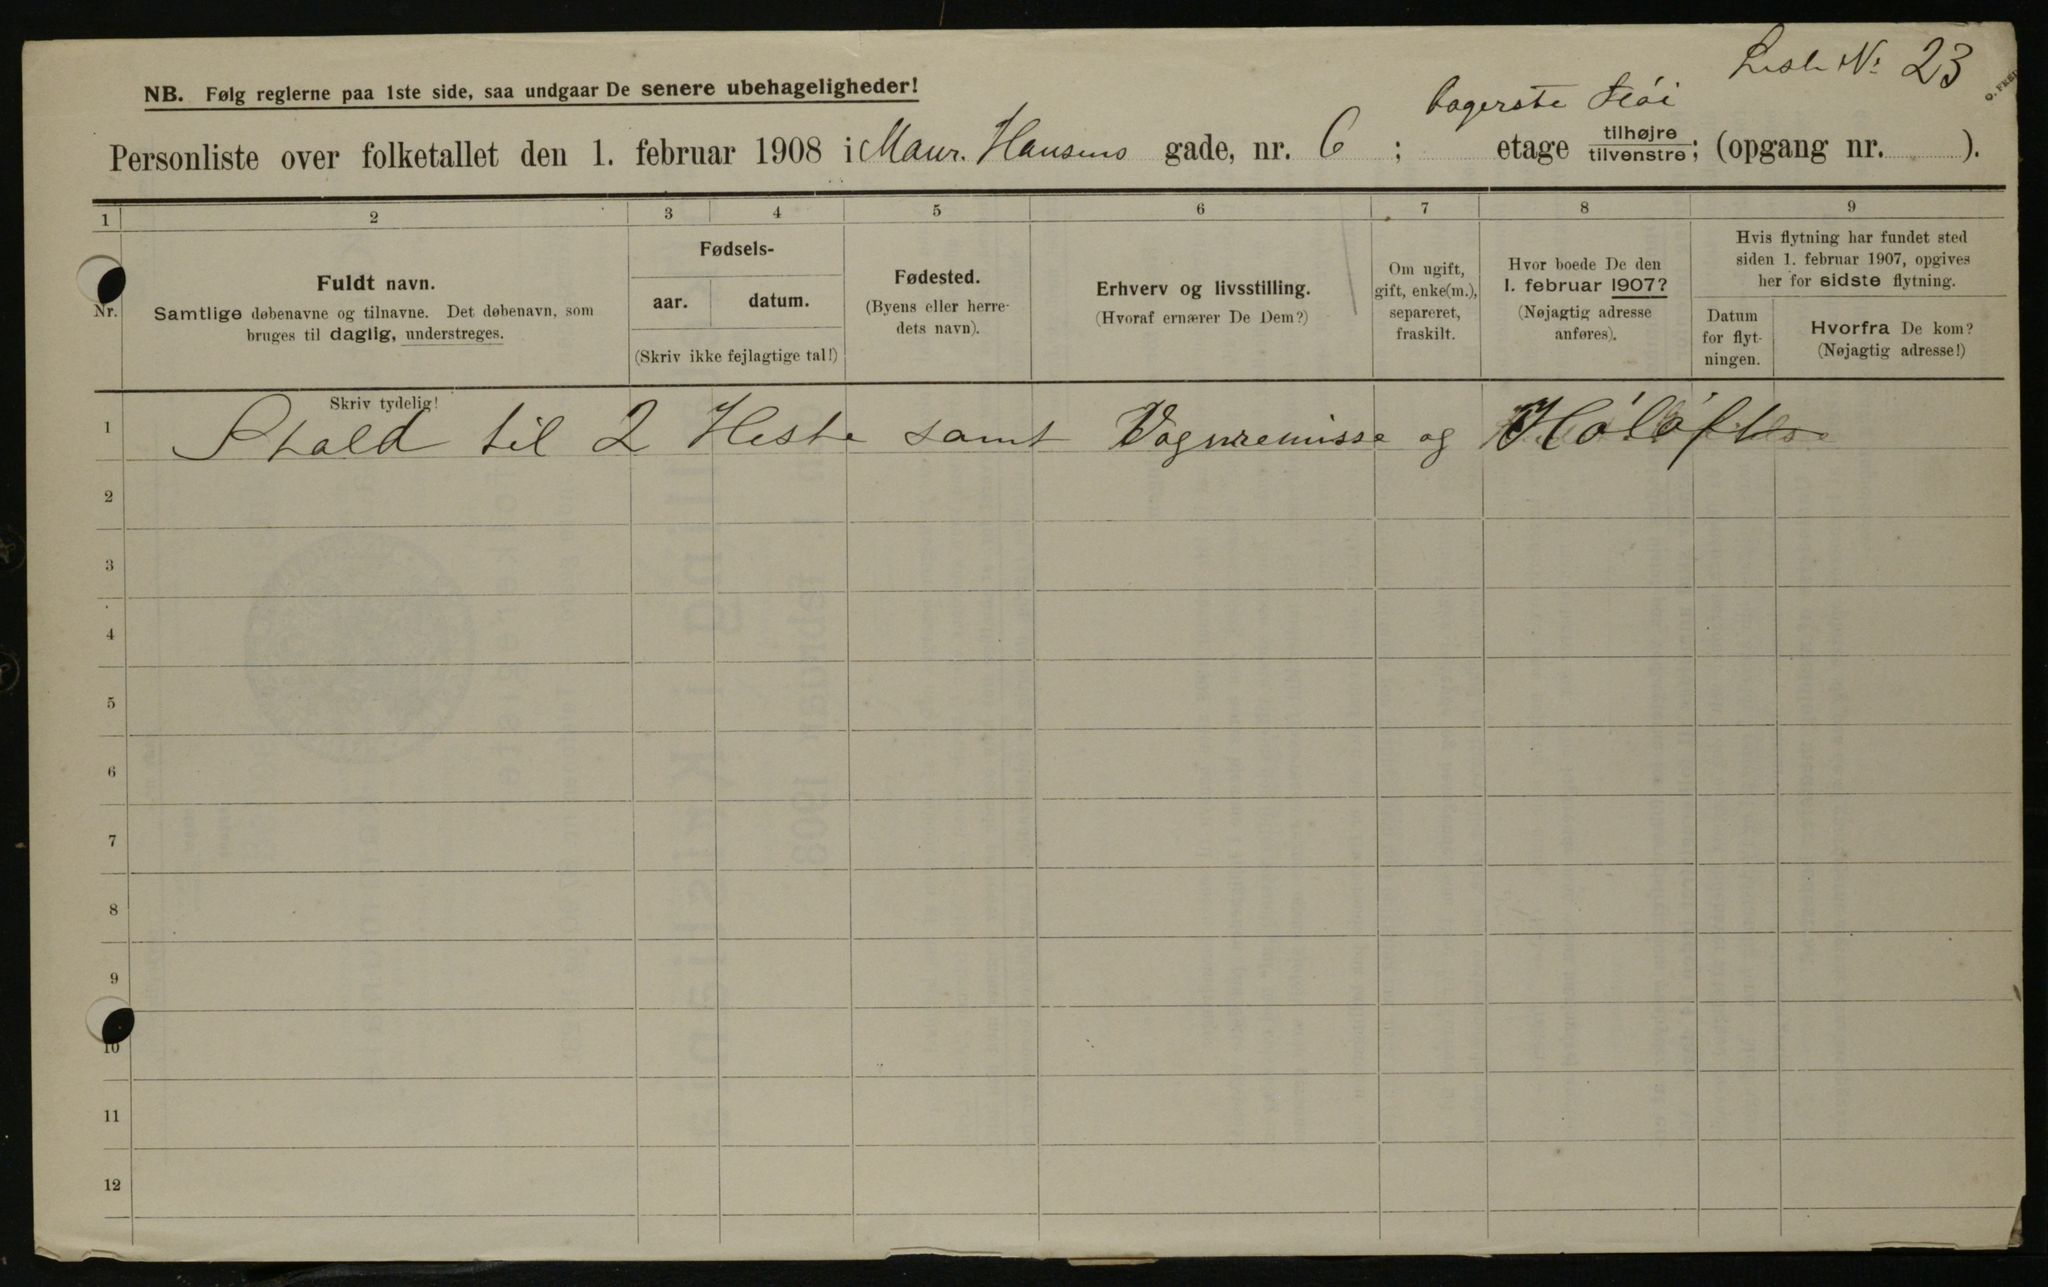 Liste No 23
NB. Følg reglerne paa 1ste side, saa undgaar De senere ubehageligheder!
bagerste
Personliste over folketallet den 1. februar 1908 i Maur. Hansens gade, nr. 6 ; etage tilhøjre/tilvenstre; (opgang nr. ).
1 2 3 4 5 6 7 8 9
Nr.
Fuldt navn.
Samtlige døbenavne og tilnavne. Det døbenavn, som
bruges til daglig, understreges.
Skriv tydelig!
Fødsels-
aar. datum.
(Skriv ikke fejlagtige tal!)
Fødested.
(Byens eller herre-
dets navn).
Erhverv og livsstilling.
(Hvoraf ernærer De Dem?)
Om ugift,
gift, enke(m.),
separeret,
fraskilt.
Hvor boede De den
1. februar 1907?
(Nøjagtig adresse
anføres).
Hvis flytning har fundet sted
siden 1. februar 1907, opgives
her for sidste flytning.
Datum
for flyt-
ningen.
Hvorfra De kom?
(Nøjagtig adresse!)
1 Stald til 2 Heste samt Vognremisse og Høloft
2
3
4
5
6
7
8
9
10
11
12